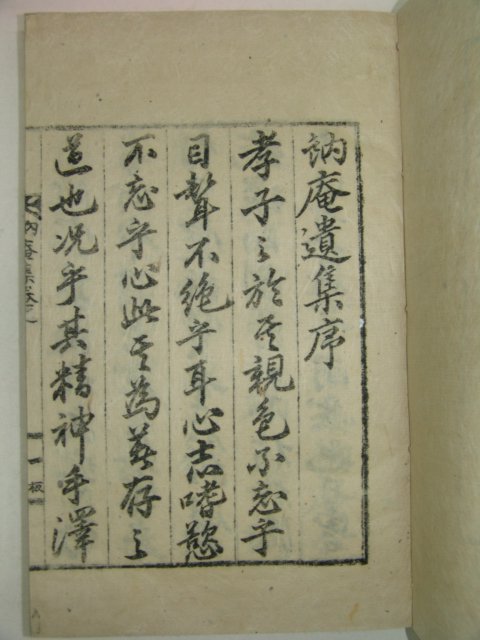 訥庵遺集序
孝子之於其親色不忘乎
目聲不絶乎耳心志嗜慾
不忘乎心此其爲著存之
道也况乎其精神手澤
訥庵集序
一
板